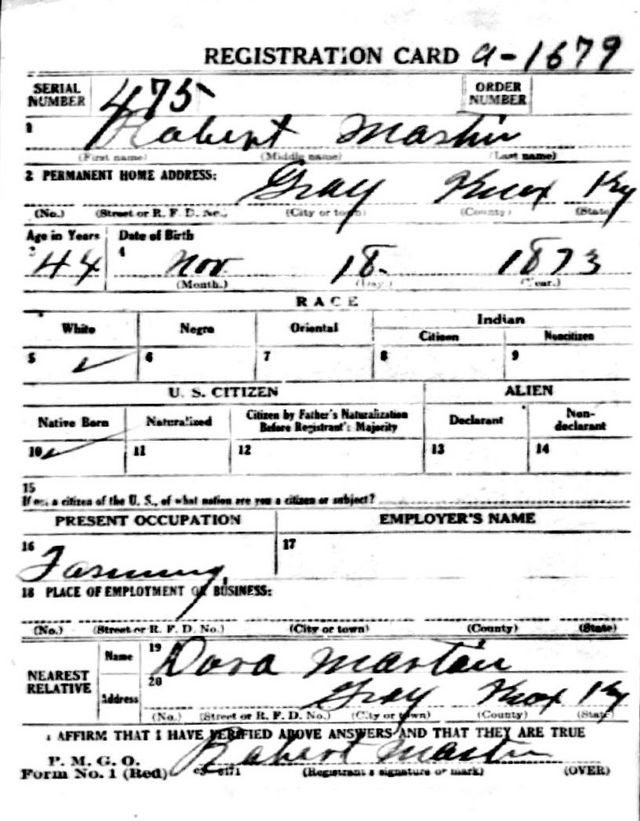 REGISTRATION CARD a-1679
SERIAL NUMBER 475 ORDER NUMBER
1 Robert Martin
(First name) (Middle name) (Last name)
2 PERMANENT HOME ADDRESS: Gray Knox Ky
(No.) (Street or R. F. D. No.) (City or town) (County) (State)
Age in Years Date of Birth
3 44 4 Nov. 18. 1873
(Month.) (Day.) (Year.)
RACE
White Negro Oriental Indian
Citizen Noncitizen
5 ✓ 6 7 8 9
U. S. CITIZEN ALIEN
Native Born Naturalized Citizen by Father's Naturalization Before Registrant's Majority Declarant Non-declarant
10 ✓ 11 12 13 14
15
If not a citizen of the U. S., of what nation are you a citizen or subject?
PRESENT OCCUPATION EMPLOYER'S NAME
16 Farming 17
18 PLACE OF EMPLOYMENT OR BUSINESS:
(No.) (Street or R. F. D. No.) (City or town) (County) (State)
NEAREST RELATIVE Name 19 Dora Martin
Address 20 Gray Knox Ky
(No.) (Street or R. F. D. No.) (City or town) (County) (State)
I AFFIRM THAT I HAVE VERIFIED ABOVE ANSWERS AND THAT THEY ARE TRUE
P. M. G. O.
Form No. 1 (Red) Robert Martin
(Registrant's signature or mark) (OVER)